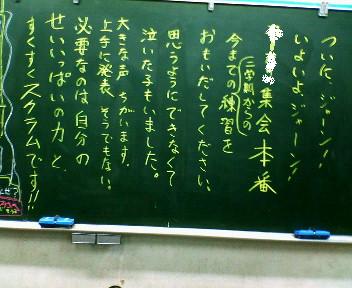 ついに、ジャーン!!
いよいよ、ジャーン!!
集会本番
三学期からの
今までの練習を
おもいだしてください。
思うようにできなくて
泣いた子もいました。
大きな声 ちがいます。
上手に発表 そうでもない。
必要なのは自分の
せいいっぱいの力と、
すくすくスクラムです!!